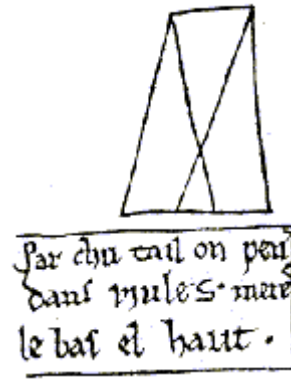 Par chu tail on peu
dans mules · mere
le bas el haut .